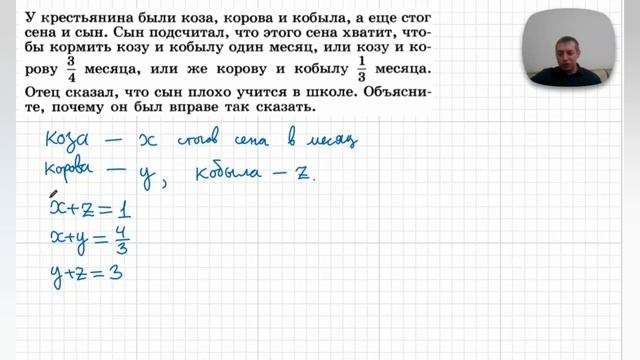 У крестьянина были коза, корова и кобыла, а еще стог
сена и сын. Сын подсчитал, что этого сена хватит, что-
бы кормить козу и кобылу один месяц, или козу и ко-
рову 3/4 месяца, или же корову и кобылу 1/3 месяца.
Отец сказал, что сын плохо учится в школе. Объясни-
те, почему он был вправе так сказать.
коза — x стогов сена в месяц
корова — y, кобыла — z.
x+z=1
x+y=4/3
y+z=3